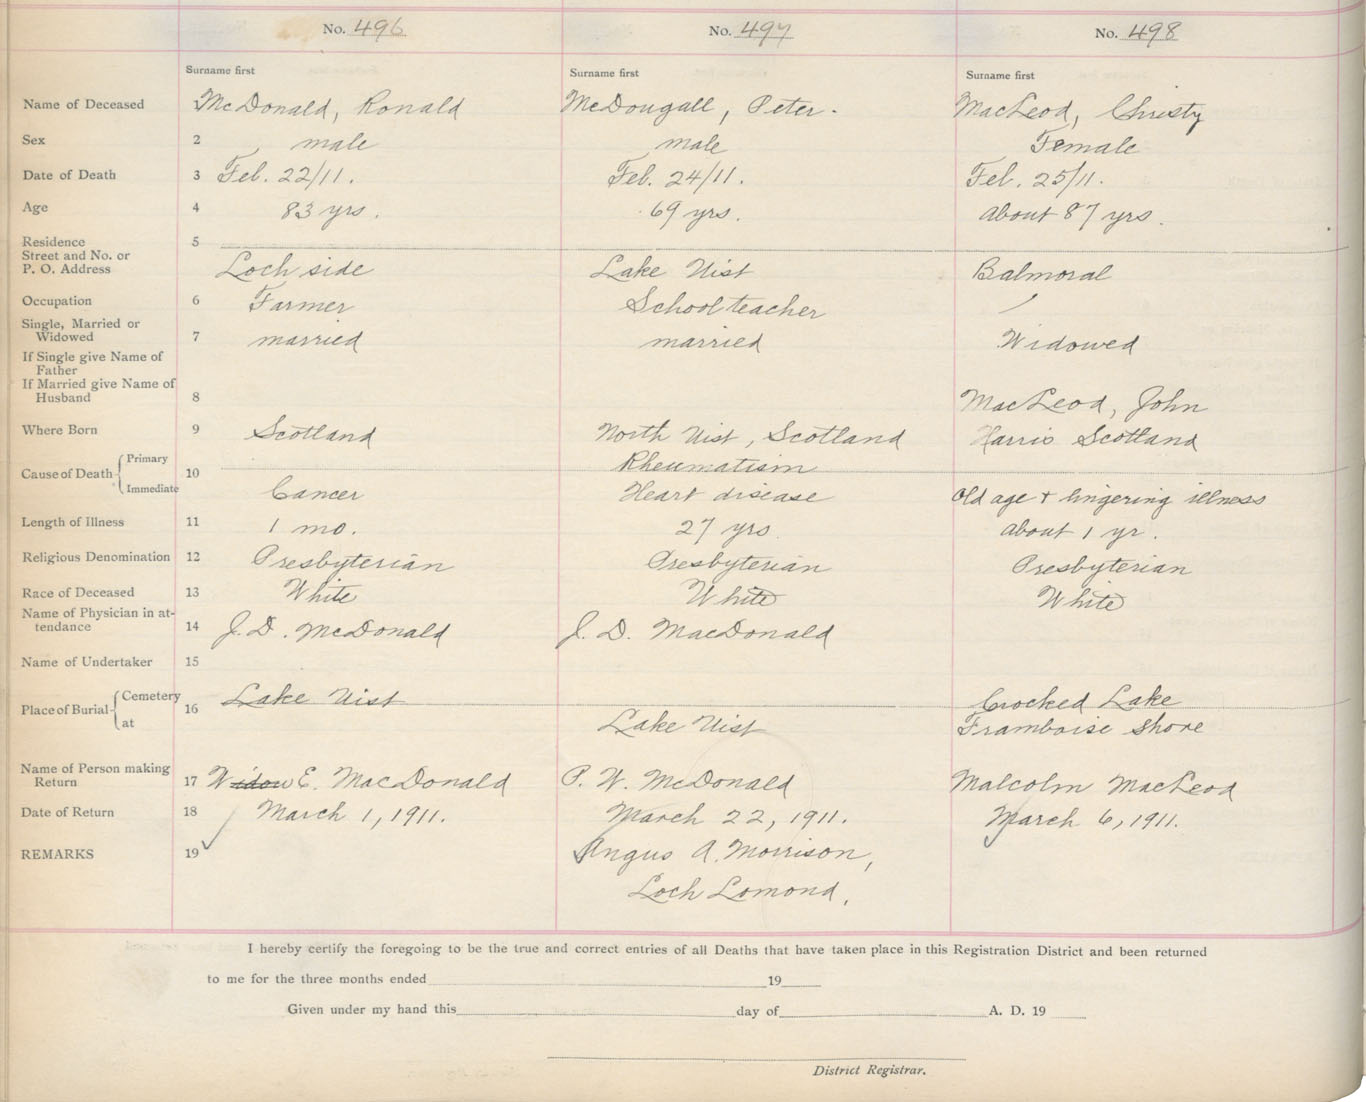 No. 496 No. 497 No. 498
Surname first Surname first Surname first
Name of Deceased McDonald, Ronald McDougall, Peter. MacLeod, Christy
Sex 2 male male Female
Date of Death 3 Feb. 22/11. Feb. 24/11. Feb. 25/11.
Age 4 83 yrs. 69 yrs. About 87 yrs.
Residence 5
Street and No. or
P. O. Address Loch side Lake Uist Balmoral
Occupation 6 Farmer School teacher
Single, Married or
Widowed 7 married married Widowed
If Single give Name of
Father
If Married give Name of
Husband 8 MacLeod, John
Where Born 9 Scotland North Uist, Scotland Harris Scotland
Cause of Death Primary 10 Rheumatism
Immediate Cancer Heart disease Old age + lingering illness
Length of Illness 11 1 mo. 27 yrs about 1 yr.
Religious Denomination 12 Presbyterian Presbyterian Presbyterian
Race of Deceased 13 White White White
Name of Physician in at-
tendance 14 J. D. McDonald J. D. MacDonald
Name of Undertaker 15
Place of Burial Cemetery 16 Lake Uist Crocked Lake
at Lake Uist Framboise Shore
Name of Person making
Return 17 Widow E. MacDonald P. W. McDonald Malcolm MacLeod
Date of Return 18 March 1, 1911. March 22, 1911. March 6, 1911.
REMARKS 19 Angus A. Morrison,
Loch Lomond,
I hereby certify the foregoing to be the true and correct entries of all Deaths that have taken place in this Registration District and been returned
to me for the three months ended 19
Given under my hand this day of A. D. 19
District Registrar.